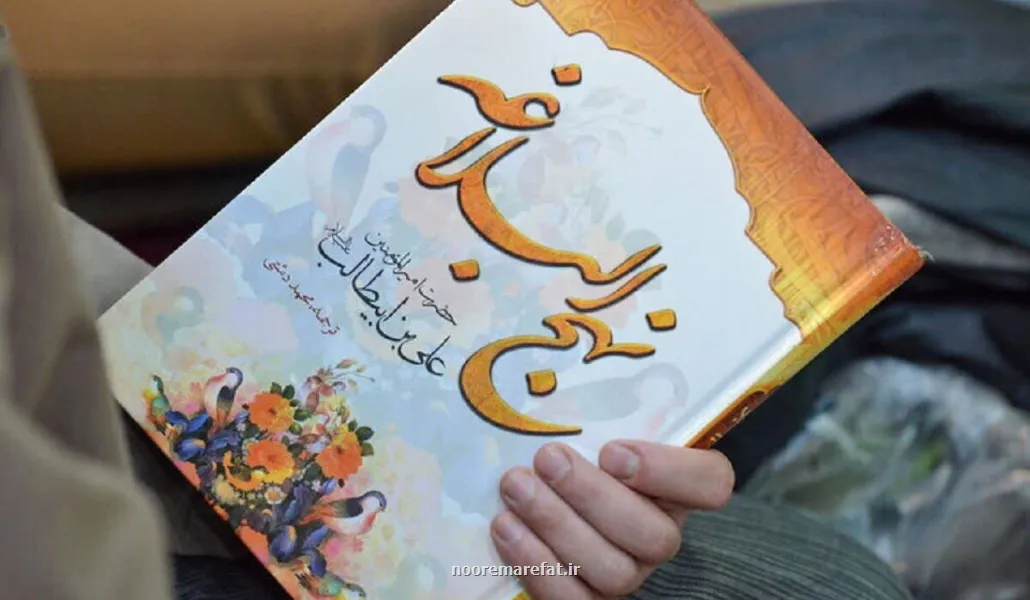 نهج البلاغه
حضرت امیرالمؤمنین
علی بن ابیطالب علیه‌السلام
ترجمه: محمد دشتی
nooremarefat.ir